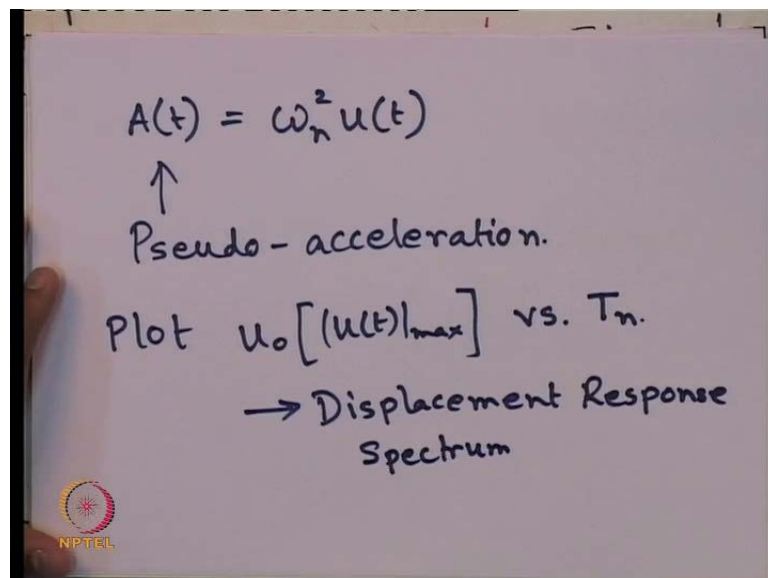 A(t) = ωn² u(t)
↑
Pseudo - acceleration.
Plot u₀[(u(t)|max] vs. Tn.
→ Displacement Response
Spectrum
NPTEL